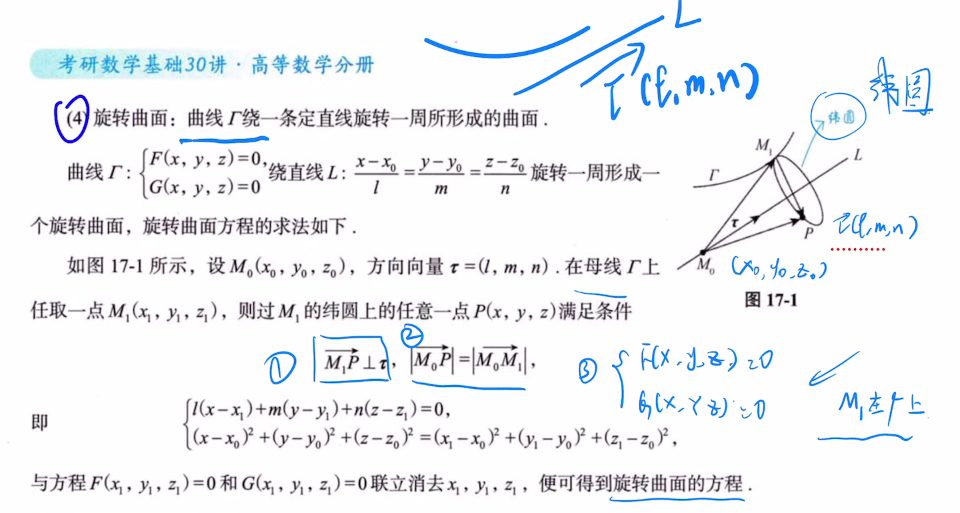 L
τ(l,m,n)
考研数学基础30讲·高等数学分册
纬圆
(4) 旋转曲面：曲线 Γ 绕一条定直线旋转一周所形成的曲面．
纬圆
曲线 Γ：{F(x, y, z)=0, G(x, y, z)=0 绕直线 L：(x-x₀)/l = (y-y₀)/m = (z-z₀)/n 旋转一周形成一
个旋转曲面，旋转曲面方程的求法如下．
M₁
L
Γ
τ
P
M₀
τ(l,m,n)
(x₀,y₀,z₀)
图 17-1
如图 17-1 所示，设 M₀(x₀, y₀, z₀)，方向向量 τ=(l, m, n)．在母线 Γ 上
任取一点 M₁(x₁, y₁, z₁)，则过 M₁ 的纬圆上的任意一点 P(x, y, z)满足条件
① M₁P⊥τ，② |M₀P|=|M₀M₁|，
③ {F(x,y,z)=0
G(x,y,z)=0
M₁在Γ上
即 {l(x-x₁)+m(y-y₁)+n(z-z₁)=0,
(x-x₀)²+(y-y₀)²+(z-z₀)²=(x₁-x₀)²+(y₁-y₀)²+(z₁-z₀)²,
与方程 F(x₁, y₁, z₁)=0 和 G(x₁, y₁, z₁)=0 联立消去 x₁, y₁, z₁，便可得到旋转曲面的方程．